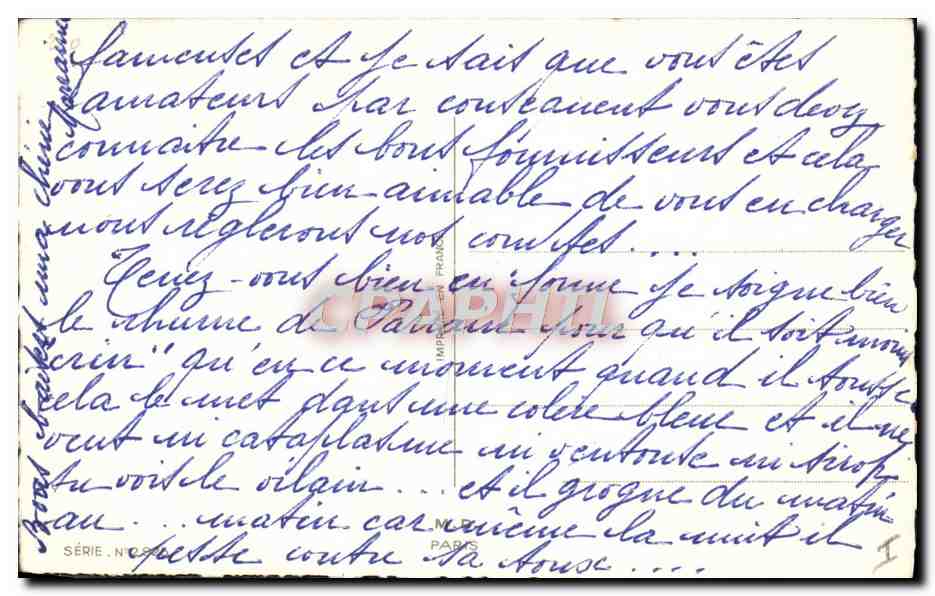 fameuses et je sais que vous êtes
amateurs par conséquent vous devez
connaitre les bons fournisseurs et cela
vous serez bien aimable de vous en charger
nous règlerons nos comptes....
Tenez-vous bien en forme je soigne bien
le rhume de Parrain pour qu'il soit moins
crin" qu'en ce moment quand il tousse
cela le met dans une colère bleue et il ne
veut ni cataplasme ni ventouse ni sirop
tu vois le vilain... et il grogne du matin
au... matin car même la nuit il
peste contre sa toux....
Bons baisers ma chérie
Marraine
IMPRIMÉ EN FRANCE
CPAPHIL
M.D.
PARIS
SÉRIE. N°
I